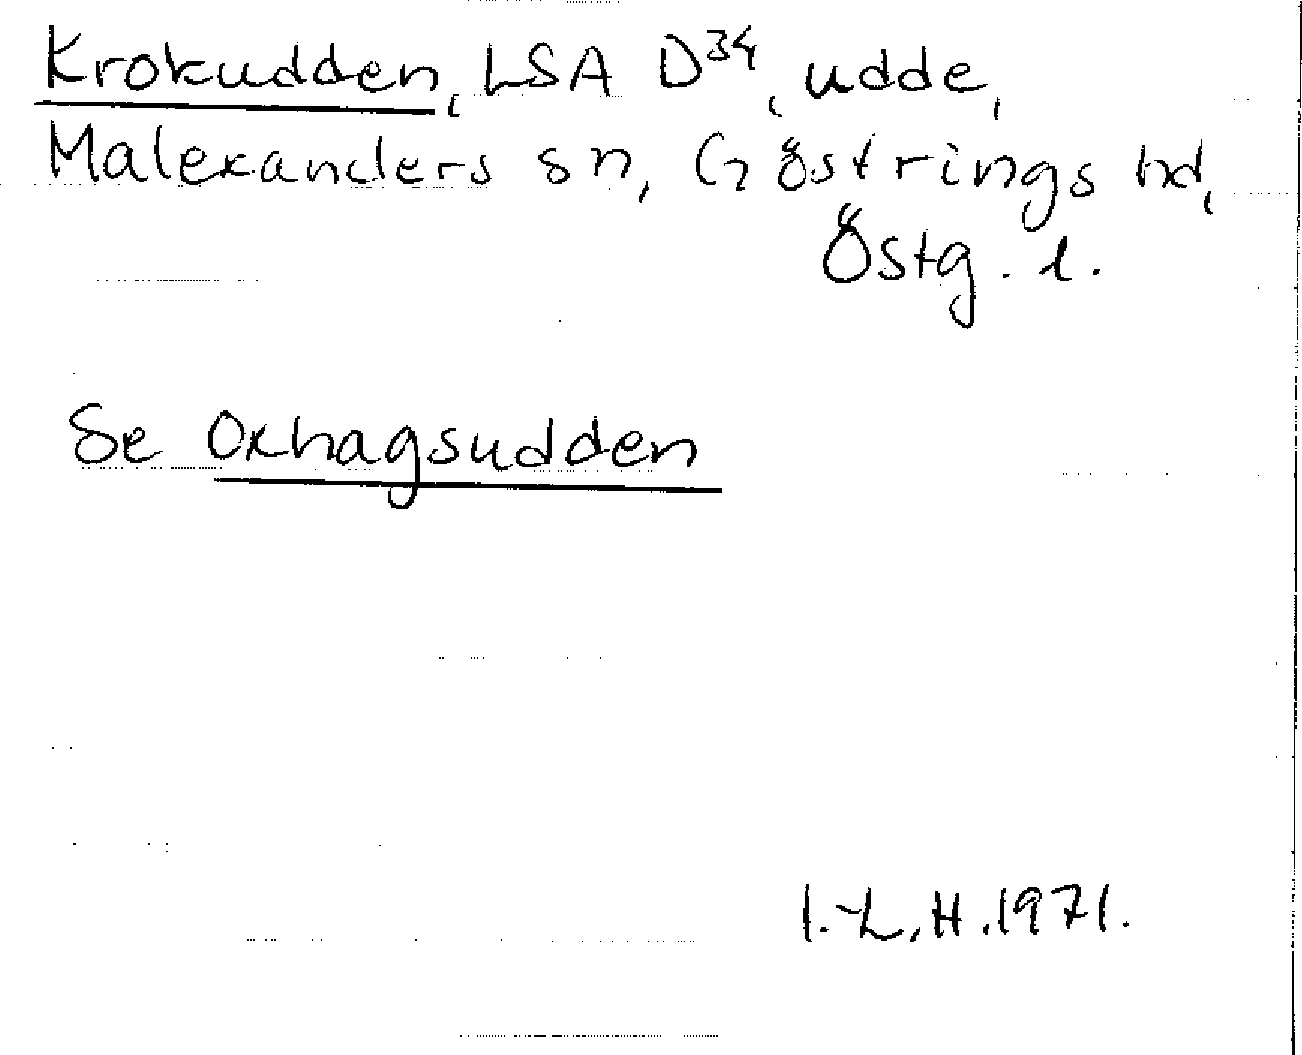 Krokudden, LSA D³⁴, udde,
Malexanders sn, Göstrings hd,
Östg. l.
Se Oxhagsudden
I.-L.H. 1971.